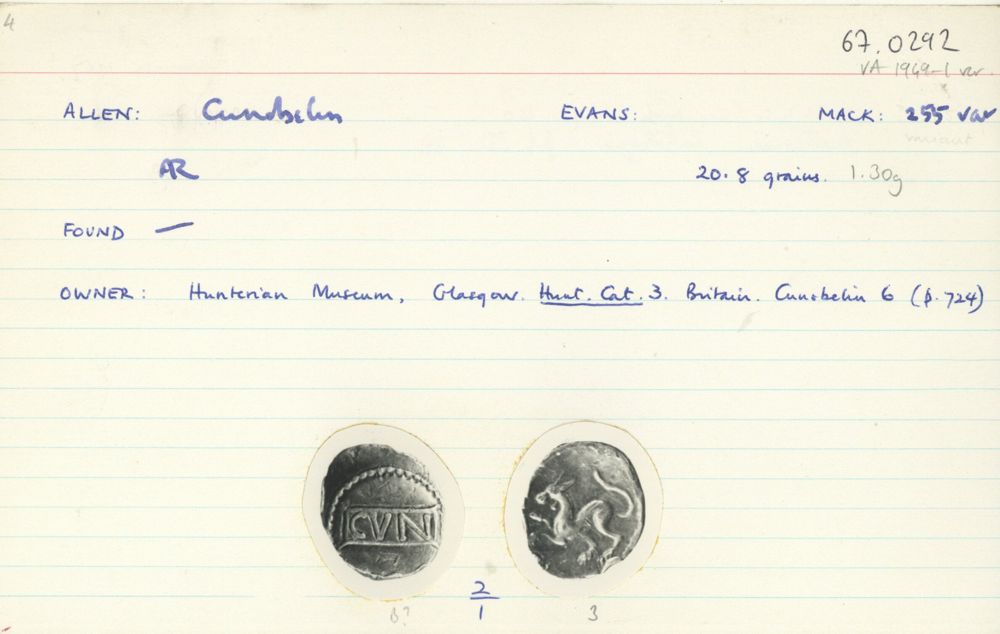 4
67.0292
VA 1949-1 var.
ALLEN: Cunobelin EVANS: MACK: 255 var
variant
AR 20.8 grains. 1.30g
FOUND —
OWNER: Hunterian Museum, Glasgow. Hunt. Cat. 3. Britain. Cunobelin 6 (p. 724)
CVN
2
B? 1 3